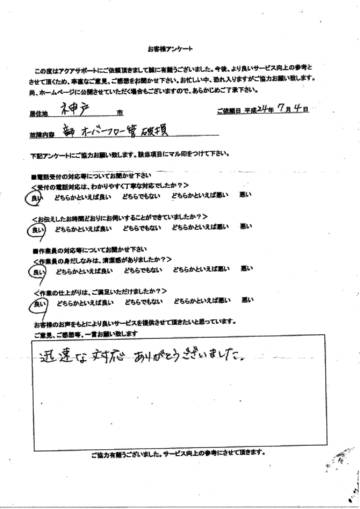 お客様アンケート
この度はアクアサポートにご依頼頂きまして誠に有難うございました。今後、より良いサービス向上の参考と
させて頂くため、率直なご意見、ご感想をお聞かせ下さい。お忙しい中、恐れ入りますがご協力お願い致します。
尚、ホームページに公開させていただく場合もございますので、あらかじめご了承下さい。
居住地 神戸 市 ご依頼日 平成24年7月4日
故障内容 オーバーフロー管破損
下記アンケートにご協力お願い致します。該当項目にマル印をつけて下さい。
■電話受付の対応等についてお聞かせ下さい
<受付の電話対応は、わかりやすく丁寧な対応でしたか?>
良い どちらかといえば良い どちらでもない どちらかといえば悪い 悪い
<お伝えしたお時間どおりにお伺いすることができていましたか?>
良い どちらかといえば良い どちらでもない どちらかといえば悪い 悪い
■作業員の対応等についてお聞かせ下さい
<作業員の身だしなみは、清潔感がありましたか?>
良い どちらかといえば良い どちらでもない どちらかといえば悪い 悪い
<作業の仕上がりは、ご満足いただけましたか?>
良い どちらかといえば良い どちらでもない どちらかといえば悪い 悪い
お客様のお声をもとにより良いサービスを提供させて頂きたいと思っています。
ご意見、ご感想等、一言お願い致します
迅速な対応 ありがとうございました。
ご協力有難うございました。サービス向上の参考にさせて頂きます。